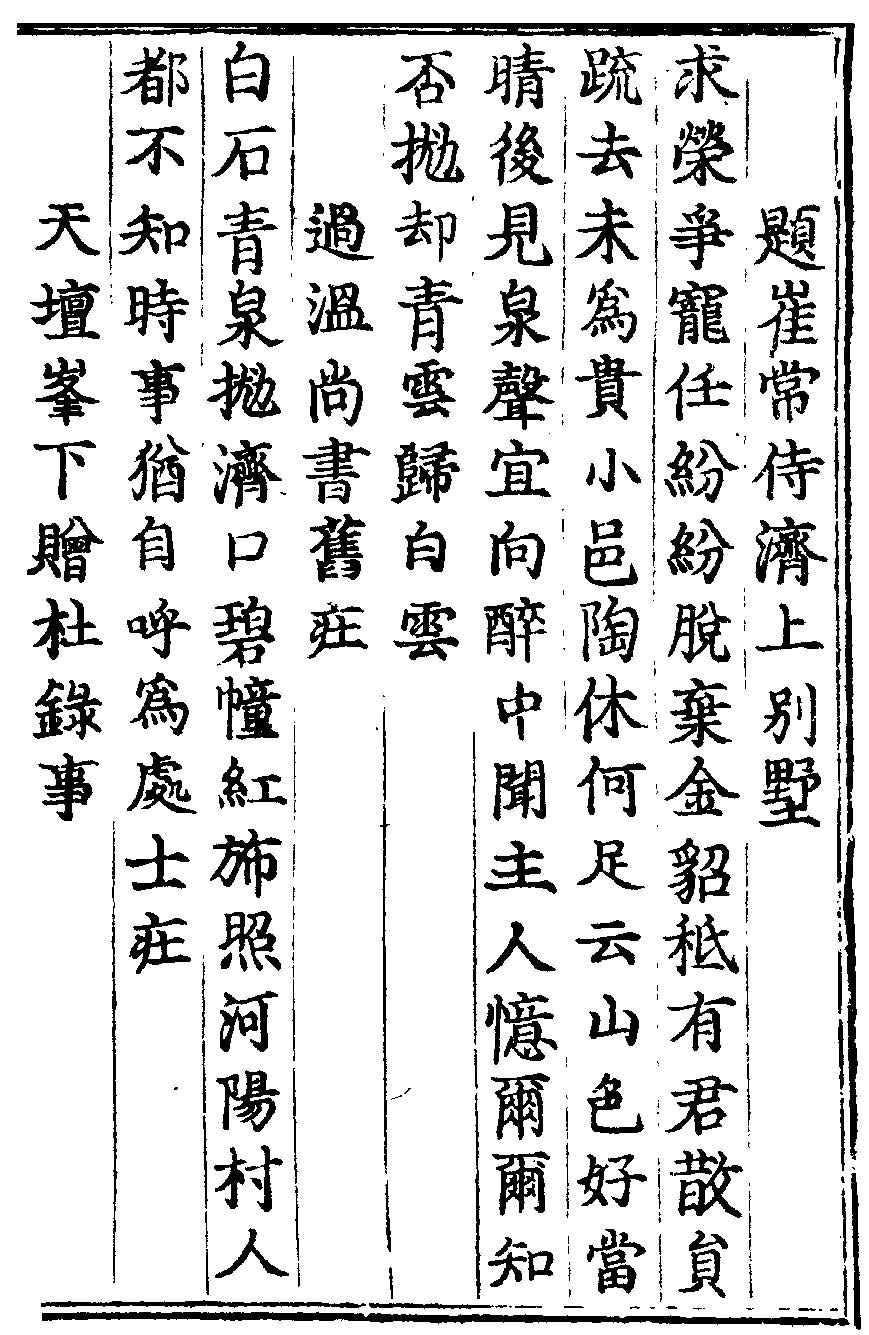 題崔常侍濟上別墅
求榮爭寵任紛紛脫棄金貂秪有君散貟
疏去未爲貴小邑陶休何足云山色好當
晴後見泉聲宜向醉中聞主人憶爾爾知
否拋却青雲歸白雲
過溫尚書舊庄
白石青泉拋濟口碧幢紅斾照河陽村人
都不知時事猶自呼爲處士庄
天壇峯下贈杜錄事